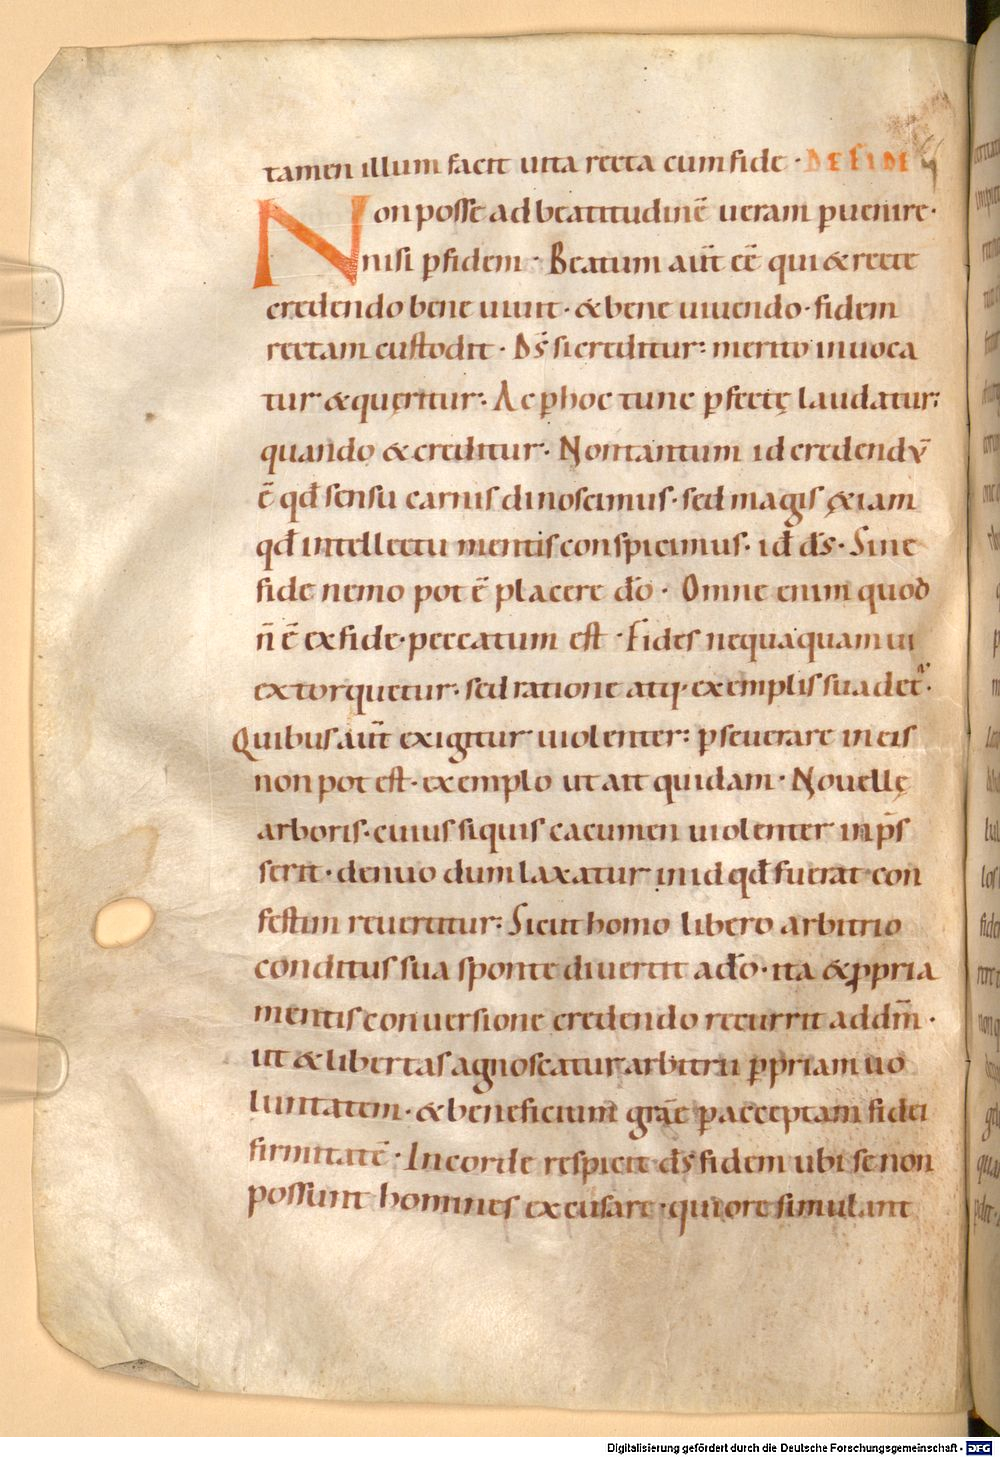 tamen illum facit uita recta cum fide · DE FIDE
Non posse ad beatitudinē ueram ꝑuenire·
nisi ꝑ fidem · Beatum aut̄ eē qui & recte
credendo bene uiuit · & bene uiuendo · fidem
rectam custodit · Ds̄ si creditur: merito inuoca
tur & quęritur: Ac ꝑ hoc tunc ꝑfectę laudatur:
quando & creditur · Non tantum id credendū
ē qđ sensu carnis dinoscimus · sed magis &iam
qđ intellectu mentis conspicimus · id d̄s · Sine
fide nemo pot ē placere d̄o · Omne enim quod
n̄ ē ex fide · peccatum est · Fides nequaquam ui
extorquetur · sed ratione atq· exemplis suadet̄·
Quibus aut̄ exigitur uiolenter: ꝑseuerare in eis
non pot est · exemplo ut ait quidam · Nouellę
arboris · cuius si quis cacumen uiolenter inp̄s
serit · denuo dum laxatur in id qđ fuerat con
festim reuertitur: Sicut homo libero arbitrio
conditus sua sponte diuertit a d̄o · ita & ꝓpria
mentis conuersione credendo recurrit ad dm̄ ·
ut & libertas agnoscatur arbitrii ꝓpriam uo
luntatem · & beneficium grāe ꝑ acceptam fidei
firmitatē · In corde respicit d̄s fidem ubi se non
possunt homines excusare · qui ore simulant
Digitalisierung gefördert durch die Deutsche Forschungsgemeinschaft - DFG